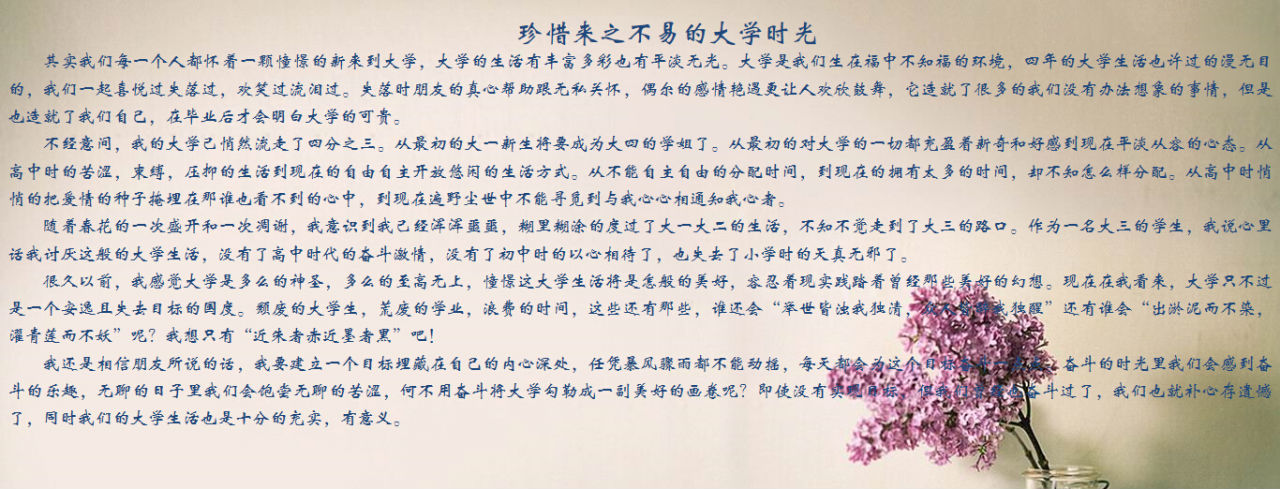 珍惜来之不易的大学时光
其实我们每一个人都怀着一颗憧憬的新来到大学，大学的生活有丰富多彩也有平淡无光。大学是我们生在福中不知福的环境，四年的大学生活也许过的漫无目
的，我们一起喜悦过失落过，欢笑过流泪过。失落时朋友的真心帮助跟无私关怀，偶尔的感情艳遇更让人欢欣鼓舞，它造就了很多的我们没有办法想象的事情，但是
也造就了我们自己，在毕业后才会明白大学的可贵。
不经意间，我的大学已悄然流走了四分之三。从最初的大一新生将要成为大四的学姐了。从最初的对大学的一切都充盈着新奇和好感到现在平淡从容的心态。从
高中时的苦涩，束缚，压抑的生活到现在的自由自主开放悠闲的生活方式。从不能自主自由的分配时间，到现在的拥有太多的时间，却不知怎么样分配。从高中时悄
悄的把爱情的种子掩埋在那谁也看不到的心中，到现在遍野尘世中不能寻觅到与我心心相通知我心者。
随着春花的一次盛开和一次凋谢，我意识到我已经浑浑噩噩，糊里糊涂的度过了大一大二的生活，不知不觉走到了大三的路口。作为一名大三的学生，我说心里
话我讨厌这般的大学生活，没有了高中时代的奋斗激情，没有了初中时的以心相待了，也失去了小学时的天真无邪了。
很久以前，我感觉大学是多么的神圣，多么的至高无上，憧憬这大学生活将是怎般的美好，容忍着现实践踏着曾经那些美好的幻想。现在在我看来，大学只不过
是一个安逸且失去目标的国度。颓废的大学生，荒废的学业，浪费的时间，这些还有那些，谁还会“举世皆浊我独清，独醒”还有谁会“出淤泥而不染，
濯青莲而不妖”呢？我想只有“近朱者赤近墨者黑”吧！
我还是相信朋友所说的话，我要建立一个目标埋藏在自己的内心深处，任凭暴风骤雨都不能动摇，每天都会为这个目标奋斗的时光里我们会感到奋
斗的乐趣，无聊的日子里我们会饱尝无聊的苦涩，何不用奋斗将大学勾勒成一副美好的画卷呢？即使没有实现目标，但我们奋斗过了，我们也就补心存遗憾
了，同时我们的大学生活也是十分的充实，有意义。